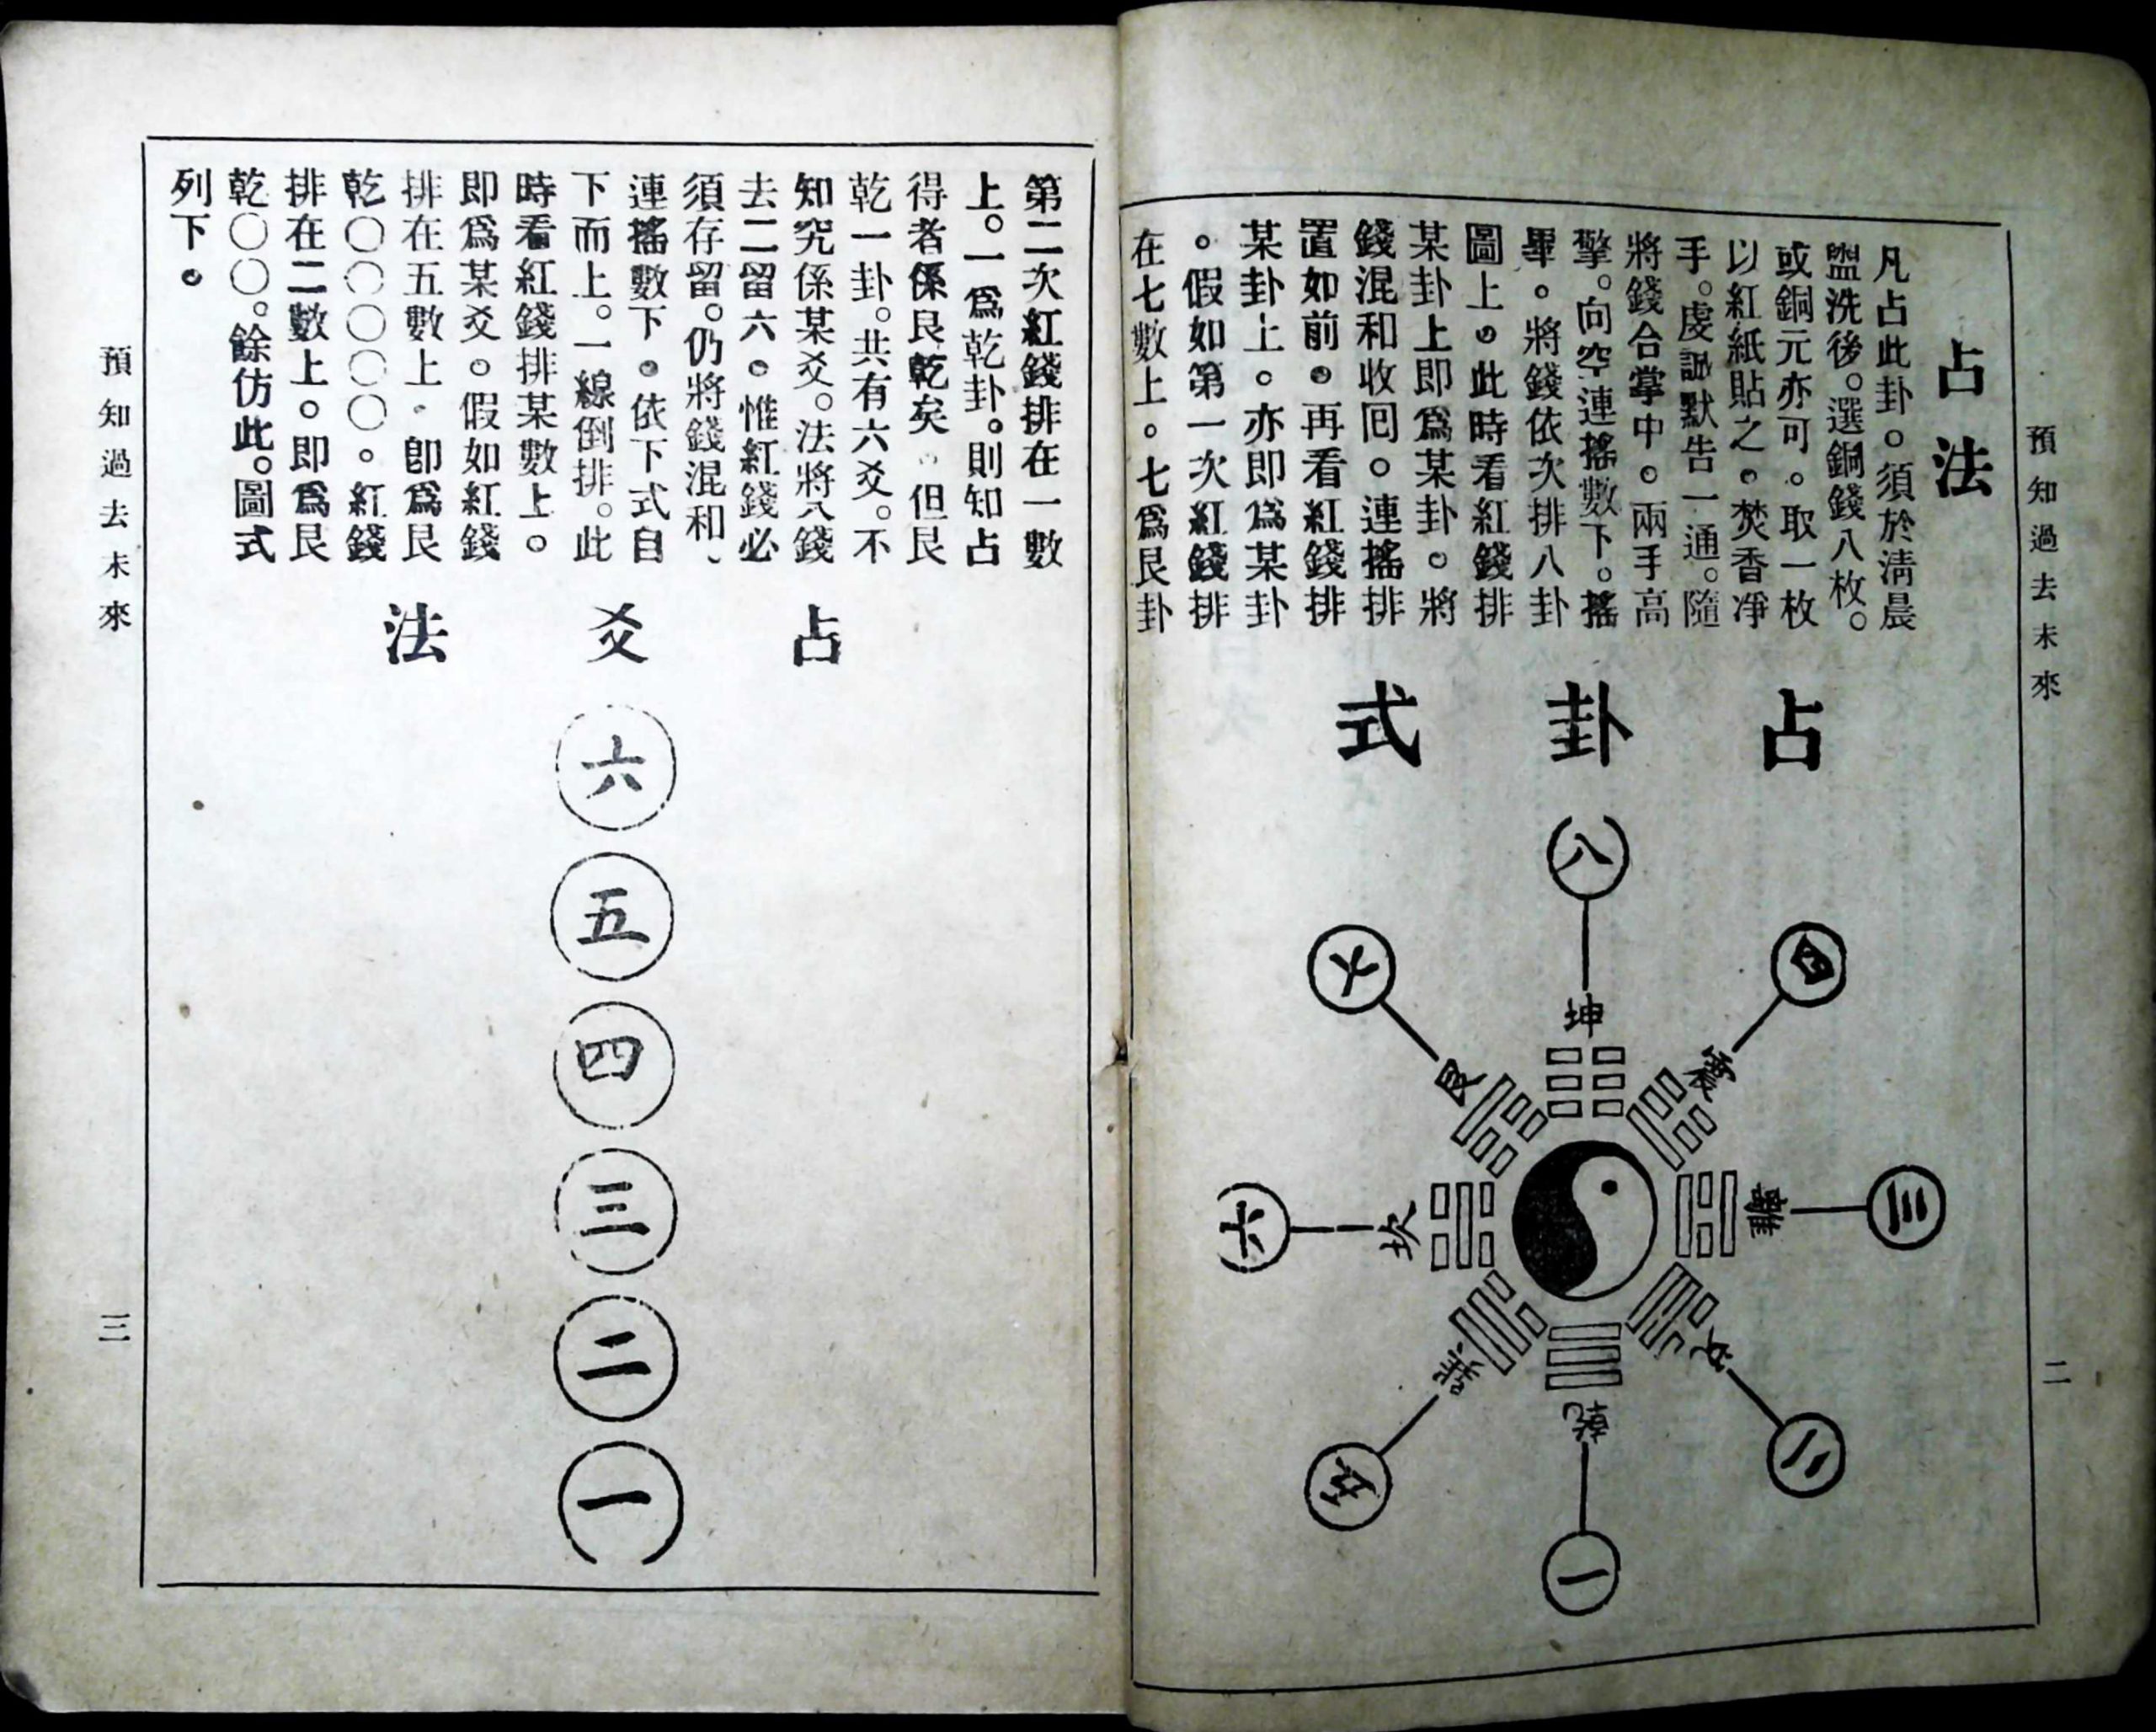 預知過去未來
二
占法
凡占此卦。須於淸晨
盥洗後。選銅錢八枚。
或銅元亦可。取一枚
以紅紙貼之。焚香凈
手。虔誠默告一通。隨
將錢合掌中。兩手高
擎。向空連搖數下。搖
畢。將錢依次排八卦
圖上。此時看紅錢排
某卦上即爲某卦。將
錢混和收回。連搖排
置如前。再看紅錢排
某卦上。亦即爲某卦
。假如第一次紅錢排
在七數上。七爲艮卦
占卦式
八
坤
四
震
三
離
二
兌
一
乾
五
巽
六
坎
七
艮
第二次紅錢排在一數
上。一爲乾卦。則知占
得者係艮乾矣。但艮
乾一卦。共有六爻。不
知究係某爻。法將八錢
去二留六。惟紅錢必
須存留。仍將錢混和、
連搖數下。依下式自
下而上。一線倒排。此
時看紅錢排某數上。
即爲某爻。假如紅錢
排在五數上。卽爲艮
乾〇〇〇〇〇。紅錢
排在二數上。即爲艮
乾〇〇。餘仿此。圖式
列下。
占爻法
六
五
四
三
二
一
預知過去未來
三